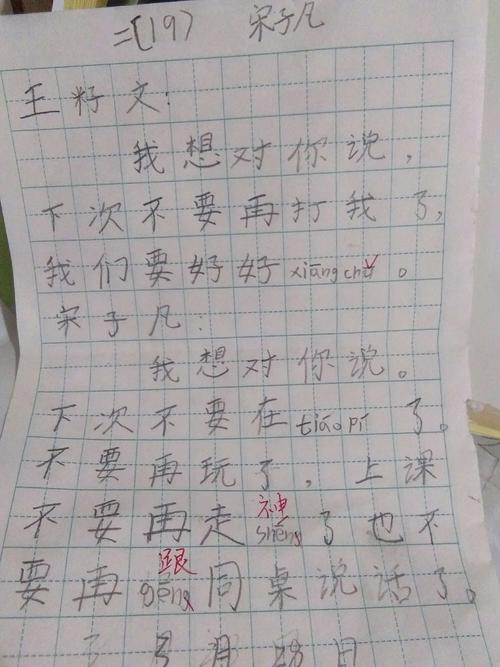 二(19) 宋子凡
王籽文：
我想对你说，
下次不要再打我了，
我们要好好xiāng chǔ。
宋子凡：
我想对你说。
下次不要在tiáo pí了。
不要再玩了，上课
不要再走神shēng了也不
要再跟gēng同桌说话了。
月28日